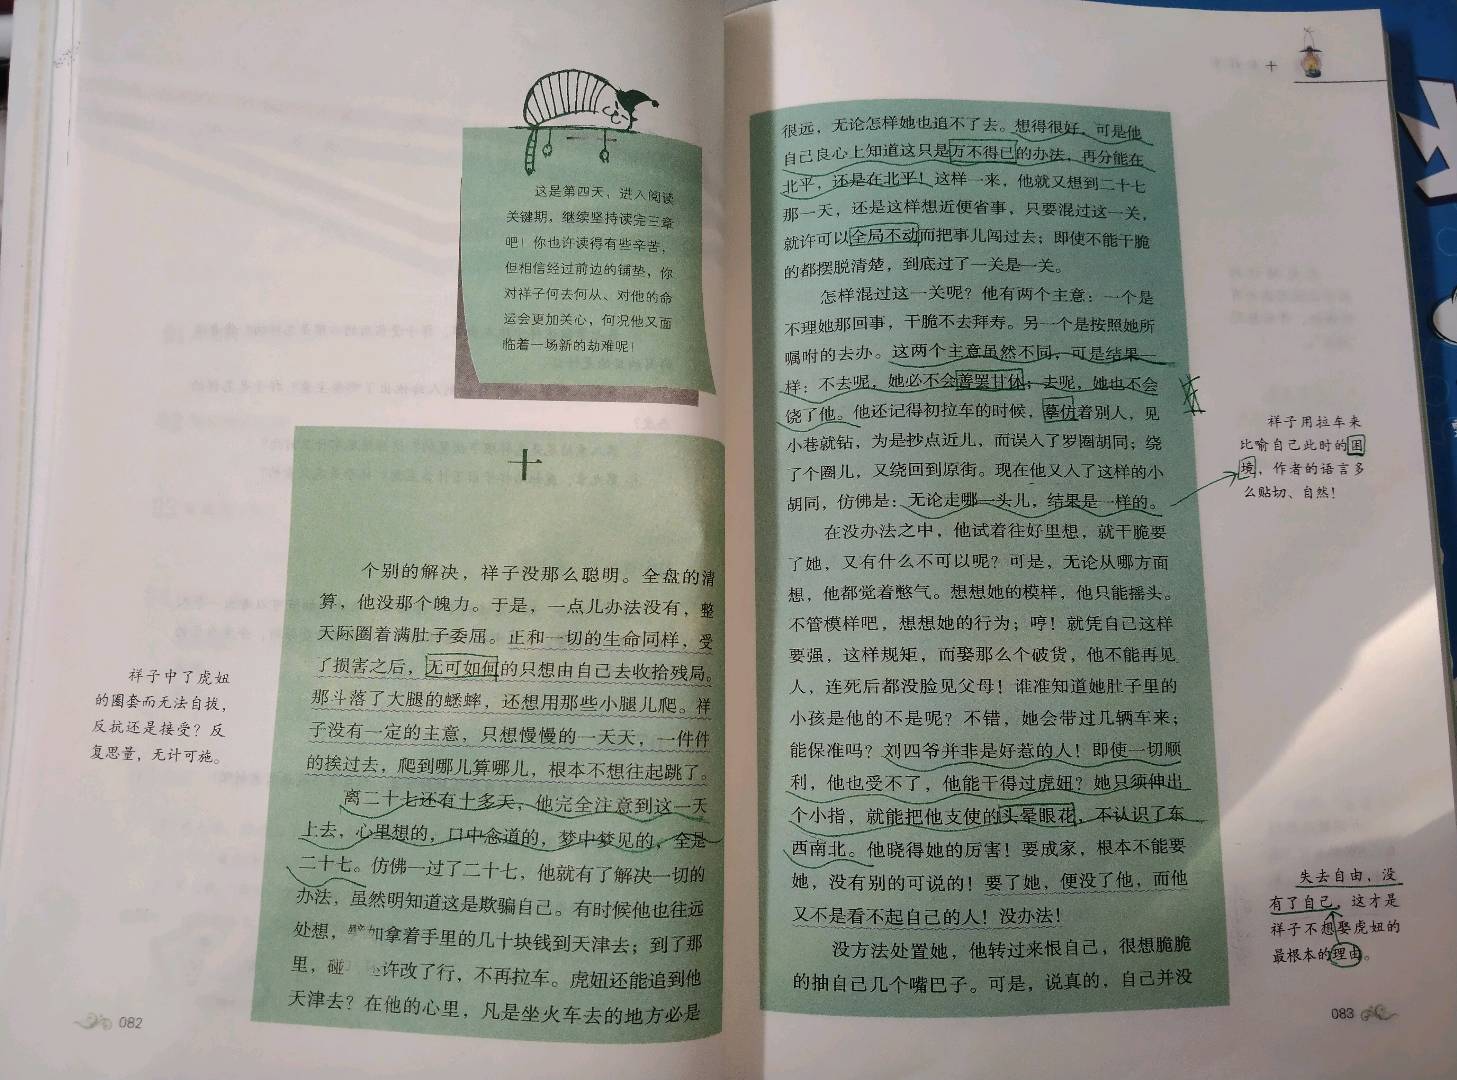 这是第四天，进入阅读
关键期，继续坚持读完三章
吧！你也许读得有些辛苦，
但相信经过前边的铺垫，你
对祥子何去何从、对他的命
运会更加关心，何况他又面
临着一场新的劫难呢！
十
个别的解决，祥子没那么聪明。全盘的清
算，他没那个魄力。于是，一点儿办法没有，整
天际圈着满肚子委屈。正和一切的生命同样，受
了损害之后，无可如何的只想由自己去收拾残局。
那斗落了大腿的蟋蟀，还想用那些小腿儿爬。祥
子没有一定的主意，只想慢慢的一天天，一件件
的挨过去，爬到哪儿算哪儿，根本不想往起跳了。
离二十七还有十多天，他完全注意到这一天
上去，心里想的，口中念道的，梦中梦见的，全是
二十七。仿佛一过了二十七，他就有了解决一切的
办法，虽然明知道这是欺骗自己。有时候他也往远
处想，譬如拿着手里的几十块钱到天津去；到了那
里，碰 许改了行，不再拉车。虎妞还能追到他
天津去？在他的心里，凡是坐火车去的地方必是
祥子中了虎妞
的圈套而无法自拔，
反抗还是接受？反
复思量，无计可施。
082
十
很远，无论怎样她也追不了去。想得很好，可是他
自己良心上知道这只是万不得已的办法，再分能在
北平，还是在北平！这样一来，他就又想到二十七
那一天，还是这样想近便省事，只要混过这一关，
就许可以全局不动而把事儿闯过去；即使不能干脆
的都摆脱清楚，到底过了一关是一关。
怎样混过这一关呢？他有两个主意：一个是
不理她那回事，干脆不去拜寿。另一个是按照她所
嘱咐的去办。这两个主意虽然不同，可是结果一
样：不去呢，她必不会善罢甘休；去呢，她也不会
饶了他。他还记得初拉车的时候，摹仿着别人，见
小巷就钻，为是抄点近儿，而误入了罗圈胡同；绕
了个圈儿，又绕回到原街。现在他又入了这样的小
胡同，仿佛是：无论走哪一头儿，结果是一样的。
在没办法之中，他试着往好里想，就干脆要
了她，又有什么不可以呢？可是，无论从哪方面
想，他都觉着憋气。想想她的模样，他只能摇头。
不管模样吧，想想她的行为；哼！就凭自己这样
要强，这样规矩，而娶那么个破货，他不能再见
人，连死后都没脸见父母！谁准知道她肚子里的
小孩是他的不是呢？不错，她会带过几辆车来；
能保准吗？刘四爷并非是好惹的人！即使一切顺
利，他也受不了，他能干得过虎妞？她只须伸出
个小指，就能把他支使的头晕眼花，不认识了东
西南北。他晓得她的厉害！要成家，根本不能要
她，没有别的可说的！要了她，便没了他，而他
又不是看不起自己的人！没办法！
没方法处置她，他转过来恨自己，很想脆脆
的抽自己几个嘴巴子。可是，说真的，自己并没
祥子用拉车来
比喻自己此时的困
境，作者的语言多
么贴切、自然！
失去自由，没
有了自己，这才是
祥子不想娶虎妞的
最根本的理由。
083